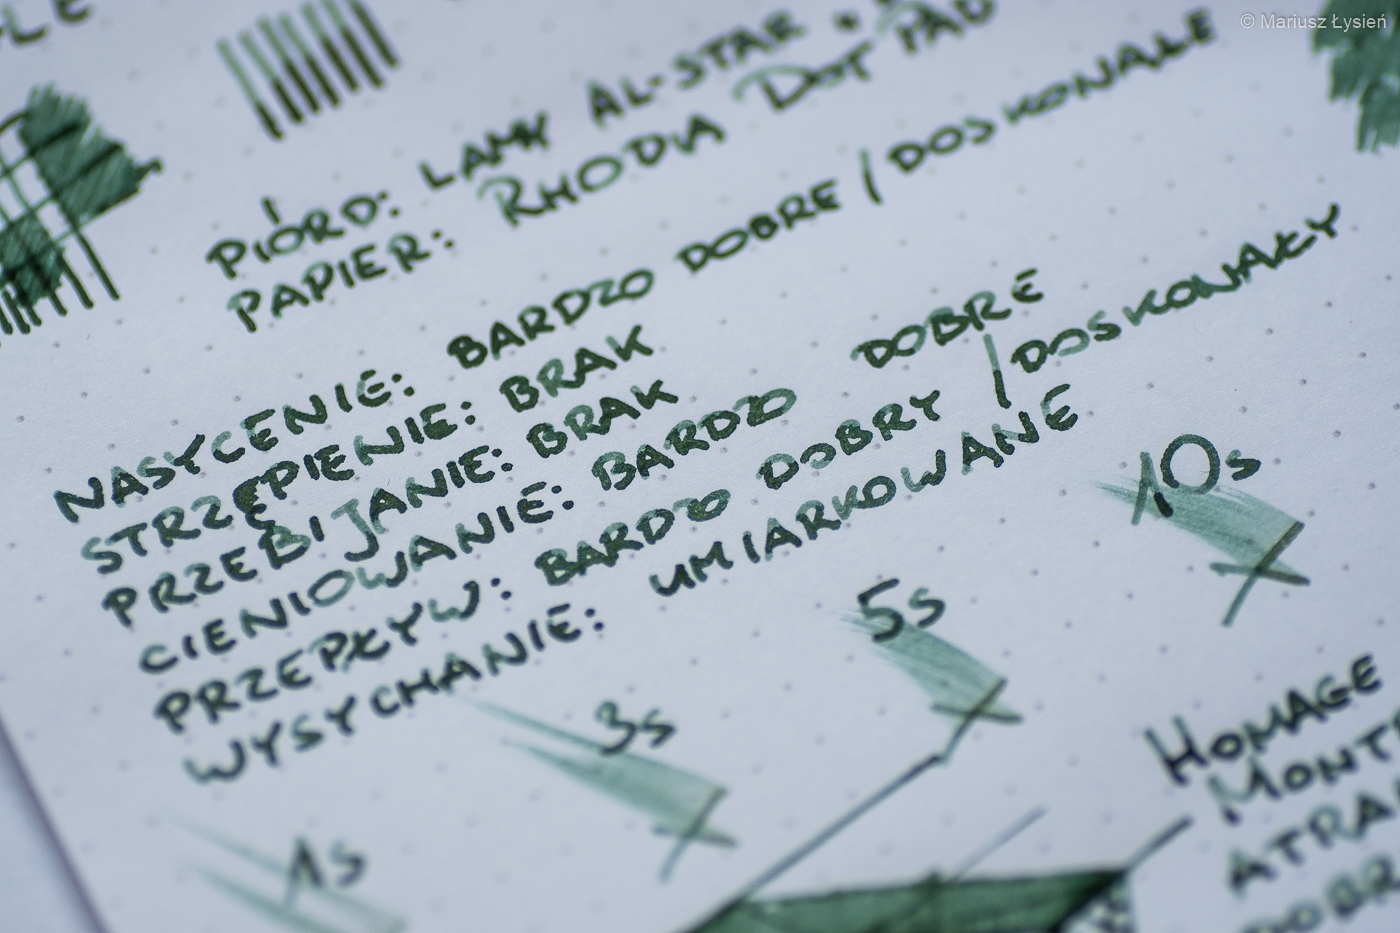 © Mariusz Łysień
PIÓRO: LAMY AL-STAR
PAPIER: RHODIA DOT PAD
NASYCENIE: BARDZO DOBRE / DOSKONAŁE
STRZĘPIENIE: BRAK
PRZEBIJANIE: BRAK
CIENIOWANIE: BARDZO DOBRE
PRZEPŁYW: BARDZO DOBRY / DOSKONAŁY
WYSYCHANIE: UMIARKOWANE
10s
5s
3s
1s
HOMAGE